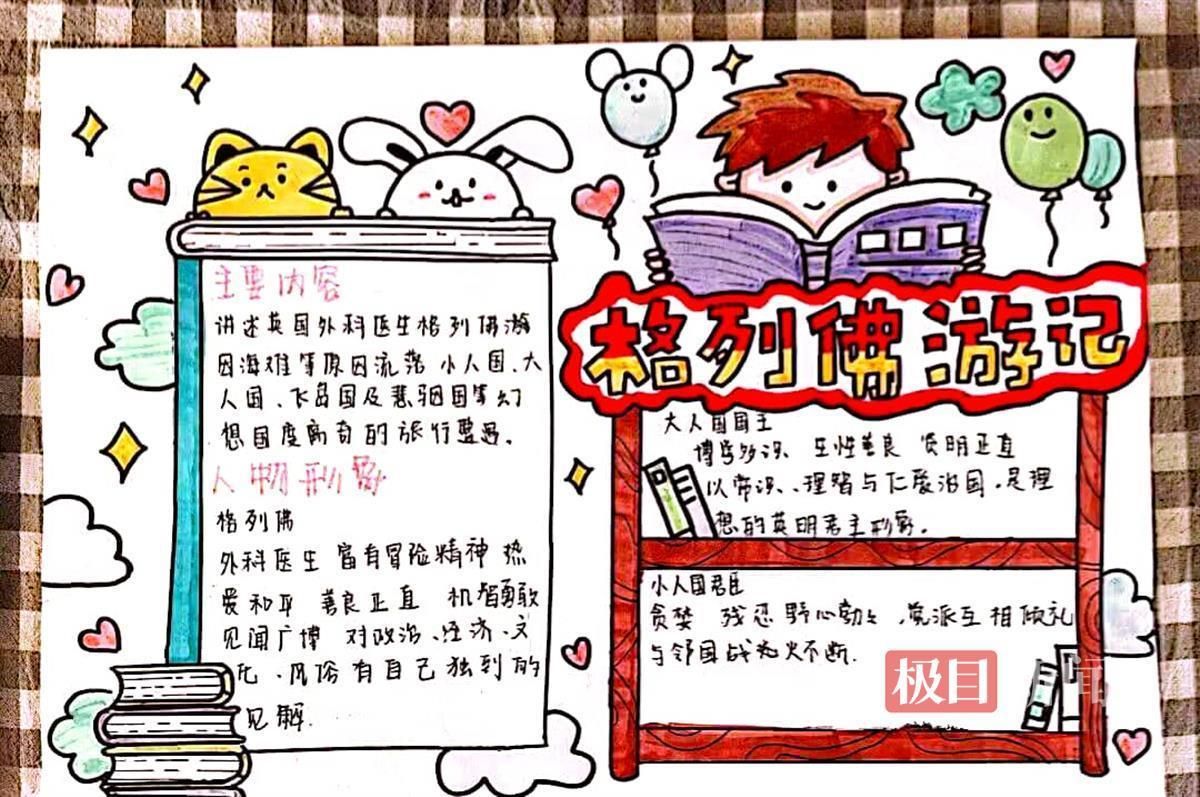 主要内容
讲述英国外科医生格列佛游
因海难等原因流落小人国、大
人国、飞岛国及慧骃国等幻
想国度离奇的旅行遭遇。
人物形象
格列佛
外科医生 富有冒险精神 热
爱和平 善良正直 机智勇敢
见闻广博 对政治、经济、文
化、风俗有自己独到的
见解.
格列佛游记
大人国国王
博学多识、生性善良 贤明正直
以常识、理智与仁爱治国,是理
想的英明君主形象。
小人国君臣
贪婪 残忍 野心勃勃,党派互相倾轧
与邻国战火不断.
极目新闻